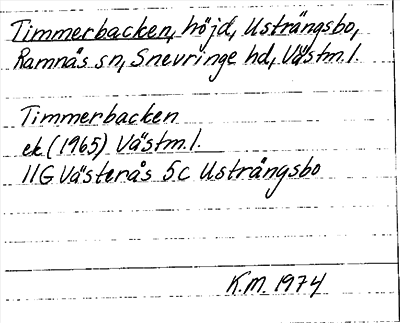 Timmerbacken, höjd, Usträngsbo,
Ramnäs sn, Snevringe hd, Västm.l.
Timmerbacken
ek (1965) Västm.l.
11G Västerås 5c Usträngsbo
K.M. 1974